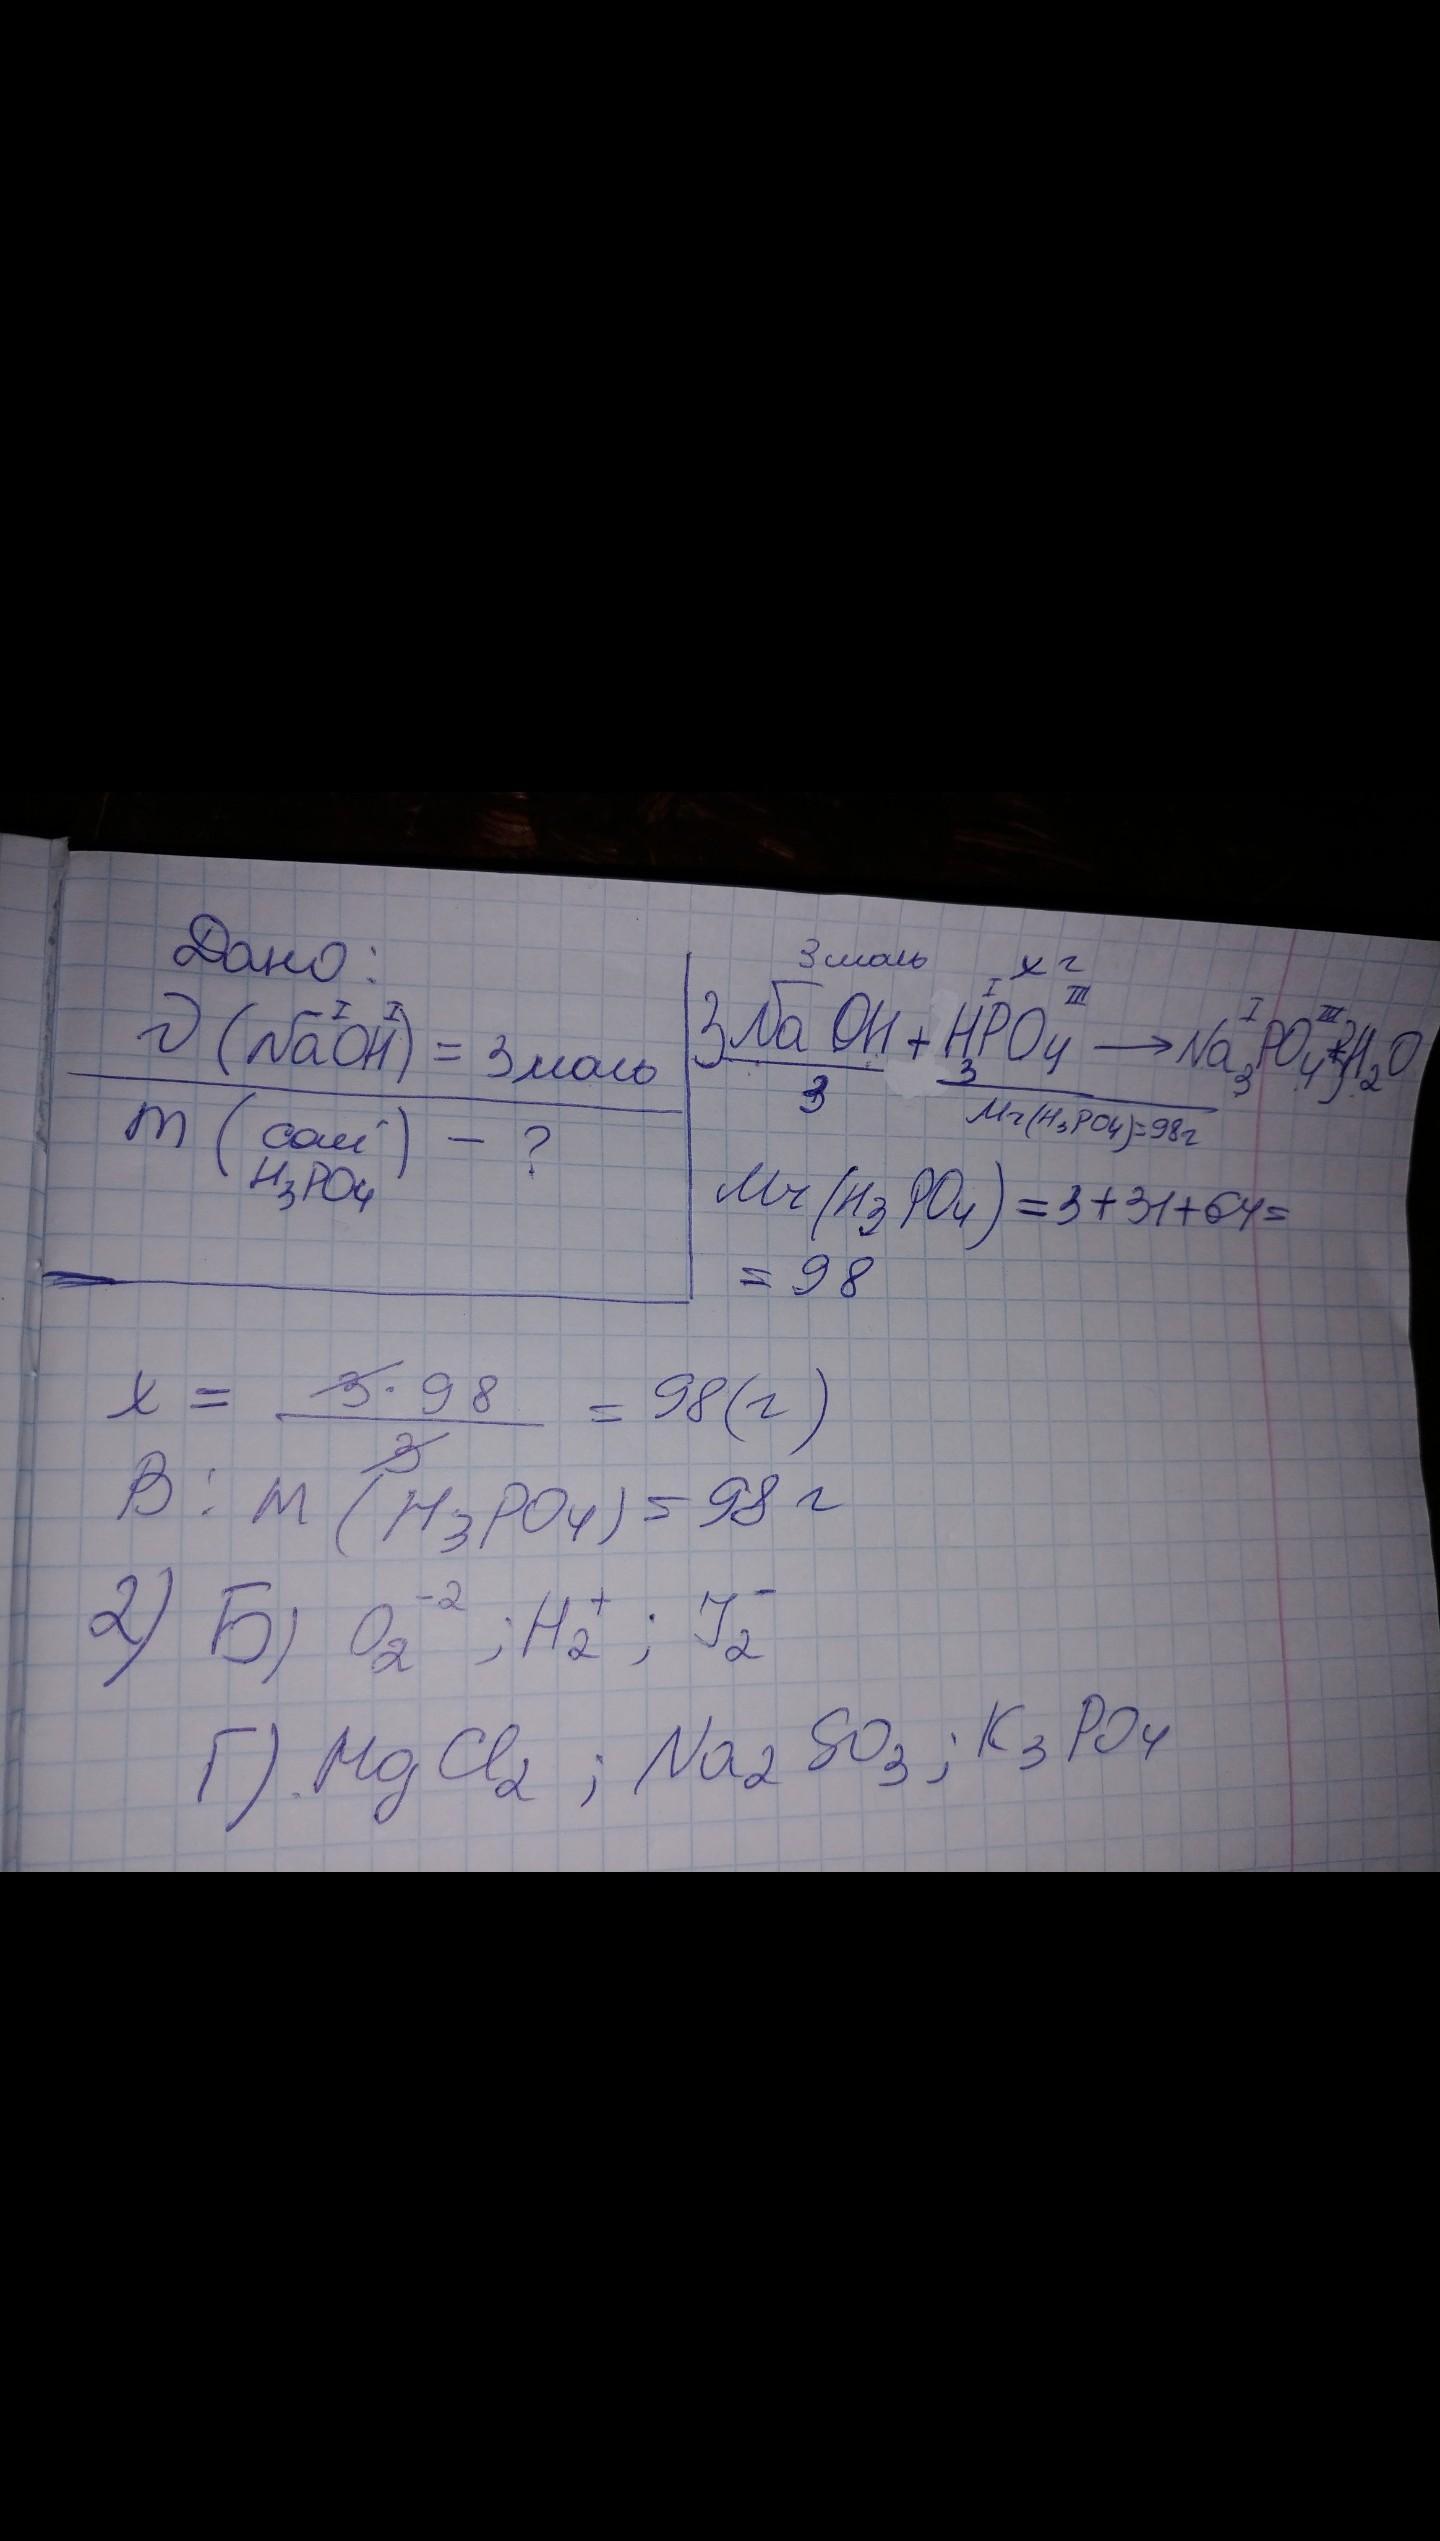 Дано:
ν(NaᴵOHᴵ) = 3 моль
m (солі) - ?
H₃PO₄
3 моль x г
I III I III
3NaOH + H₃PO₄ → Na₃PO₄ + 3H₂O
3 Mr(H₃PO₄)=98г
Mr(H₃PO₄) = 3+31+64=
= 98
x = 3·98/3 = 98(г)
В: m (H₃PO₄) = 98 г
2) Б) O₂⁻² ; H₂⁺ ; J₂⁻
Г). MgCl₂ ; Na₂SO₃ ; K₃PO₄